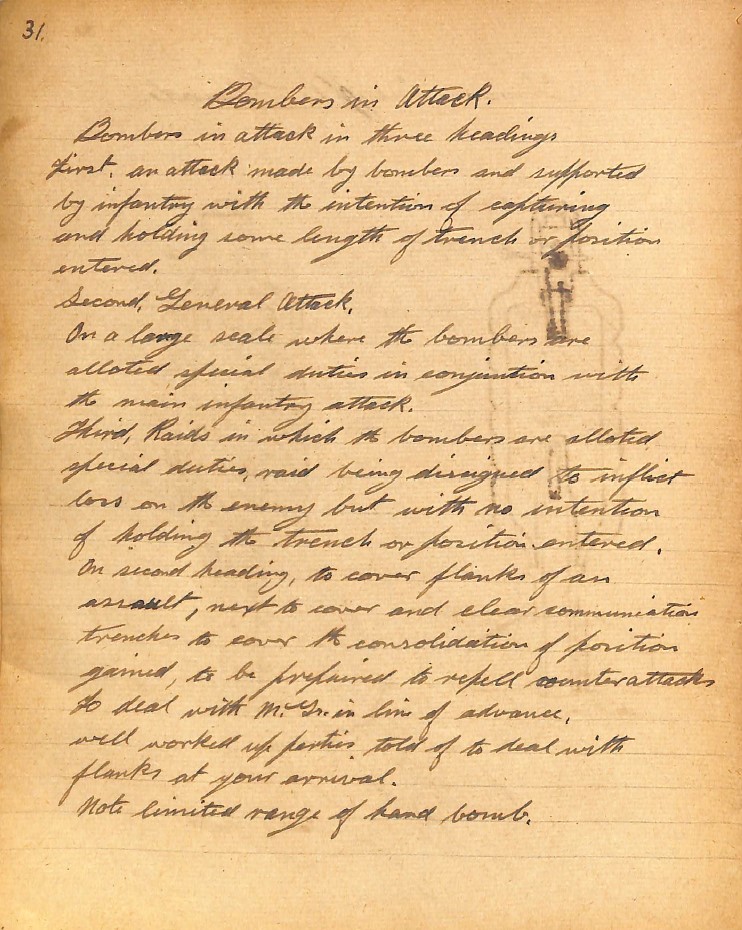 31.
Bombers in Attack.
Bombers in attack in three headings
First. an attack made by bombers and supported
by infantry with the intention of capturing
and holding some length of trench or position
entered.
Second, General Attack.
On a large scale where the bombers are
alloted special duties in conjuntion with
the main infantry attack.
Third, Raids in which the bombers are alloted
special duties, raid being discigned to inflict
loss on the enemy but with no intention
of holding the trench or position entered.
On second heading, to cover flanks of an
assault, next to cover and clear communication
trenches to cover the consolidation of position
gained, to be prepaired to repell counter attacks
to deal with M. Gs. in line of advance,
well worked up parties told of to deal with
flanks at your arrival.
Note limited range of hand bomb.